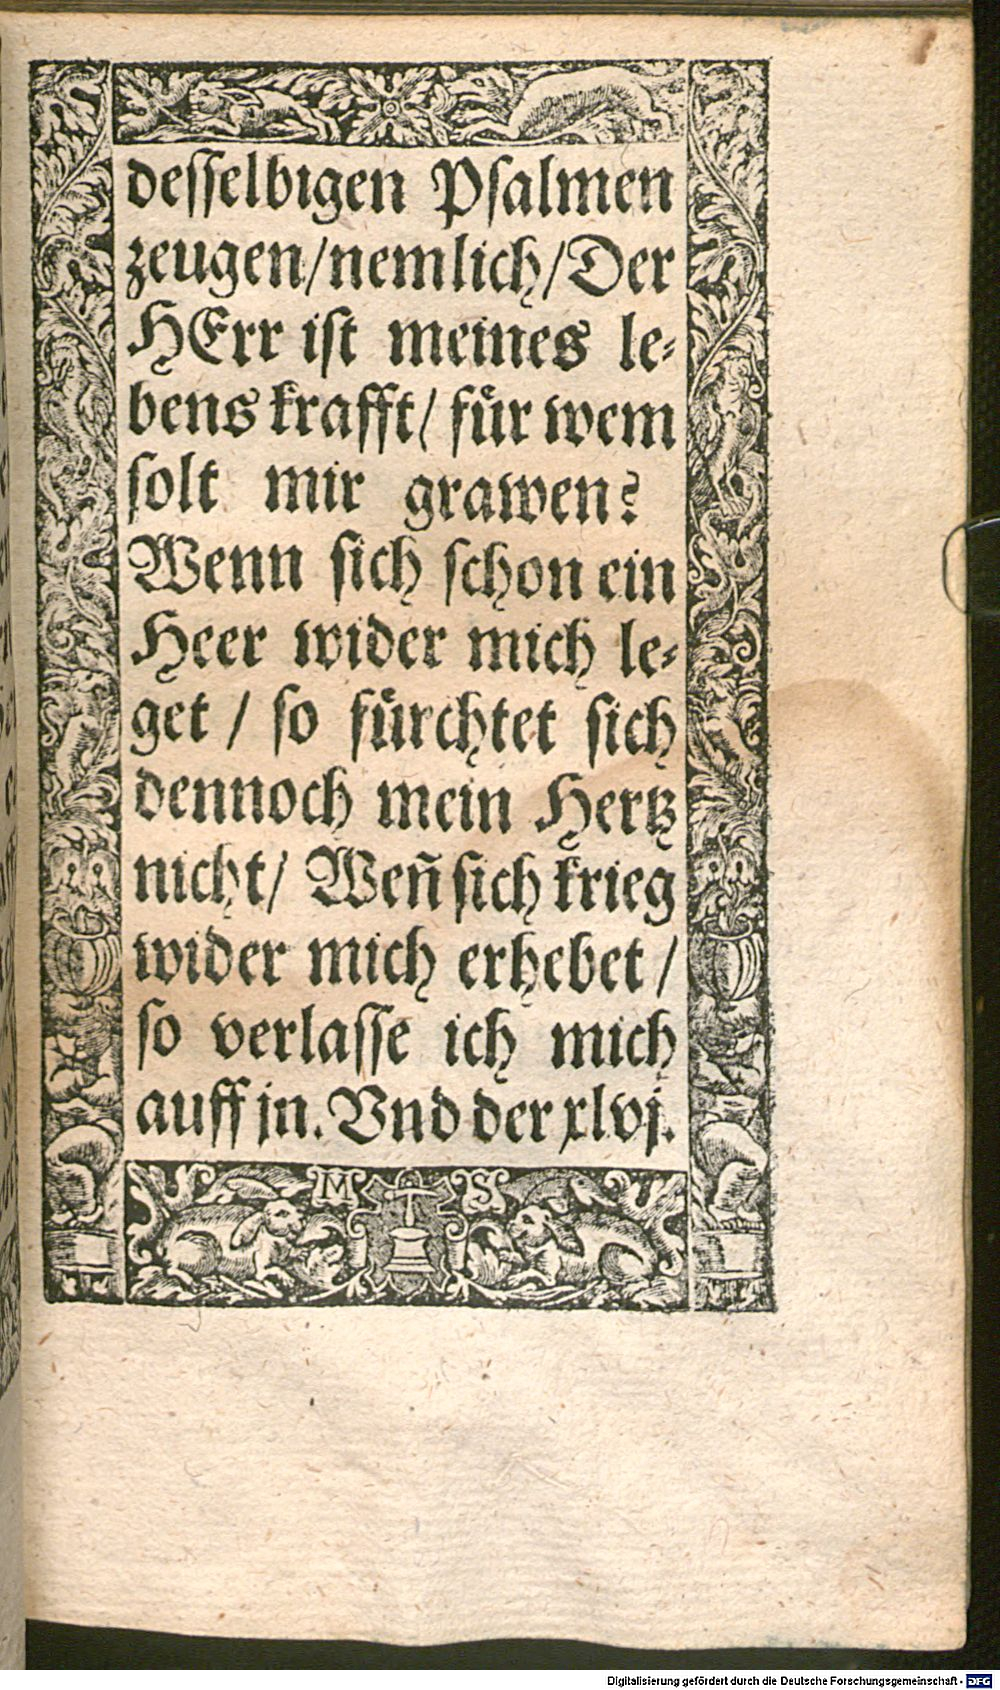 desselbigen Psalmen
zeugen/nemlich/Der
HErr ist meines le⸗
bens krafft/ fuͤr wem
solt mir grawen?
Wenn sich schon ein
Heer wider mich le⸗
get / so fuͤrchtet sich
dennoch mein Hertz
nicht/ Weñ sich krieg
wider mich erhebet /
so verlasse ich mich
auff jn. Vnd der xlvj.
M S
Digitalisierung gefördert durch die Deutsche Forschungsgemeinschaft - DFG